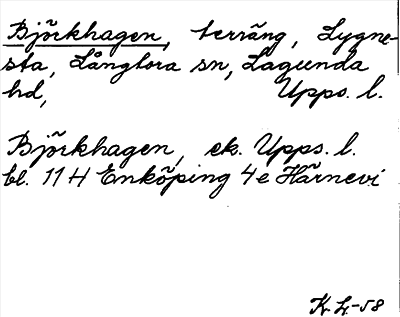 Björkhagen, terräng, Lygne-
sta, Långtora sn, Lagunda
hd, Upps. l.
Björkhagen, ek. Upps. l.
bl. 11 H Enköping 4 e Härnevi
K. L-58